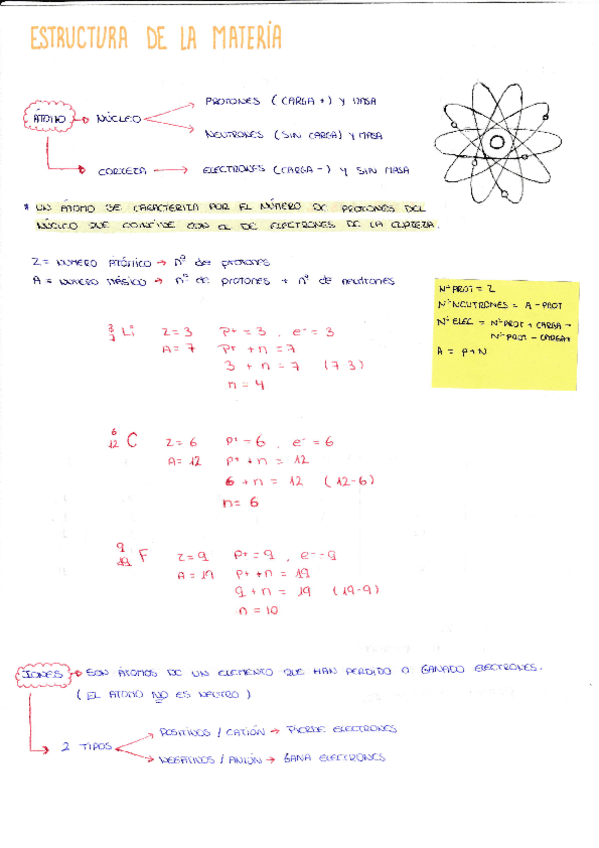 ESTRUCTURA DE LA MATERÍA
ÁTOMO → NÚCLEO → PROTONES (CARGA +) Y MASA
NEUTRONES (SIN CARGA) Y MASA
CORTEZA → ELECTRONES (CARGA -) Y SIN MASA
* UN ÁTOMO SE CARACTERIZA POR EL NÚMERO DE PROTONES DEL
NÚCLEO QUE COINCIDE CON EL DE ELECTRONES DE LA CORTEZA.
Z = NUMERO ATÓMICO → nº de protones
A = NUMERO MÁSICO → nº de protones + nº de neutrones
Nº PROT = Z
Nº NEUTRONES = A - PROT
Nº ELEC = Nº PROT + CARGA -
Nº PROT - CARGA+
A = P+N
3 7 Li Z=3 P+ = 3 . e- = 3
A=7 P+ + n = 7
3 + n = 7 (7 3)
n = 4
6 12 C Z=6 P+ = 6 . e- = 6
A=12 P+ + n = 12
6 + n = 12 (12-6)
n= 6
9 19 F Z=9 P+ = 9 . e- = 9
A=19 P+ + n = 19
9 + n = 19 (19-9)
n = 10
IONES → SON ÁTOMOS DE UN ELEMENTO QUE HAN PERDIDO O GANADO ELECTRONES.
(EL ÁTOMO NO ES NEUTRO)
2 TIPOS → POSITIVOS / CATIÓN → PIERDE ELECTRONES
NEGATIVOS / ANIÓN → GANA ELECTRONES